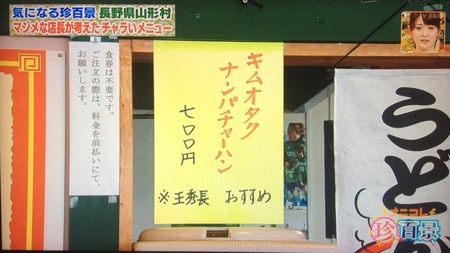 気になる珍百景 長野県山形村
マジメな店長が考えたチャラいメニュー
食券は不要です。
ご注文の際は、料金を前払いにて、
お願いします。
キムオタク
ナンパチャーハン
七〇〇円
※王秀長 おすすめ
うどん
珍百景